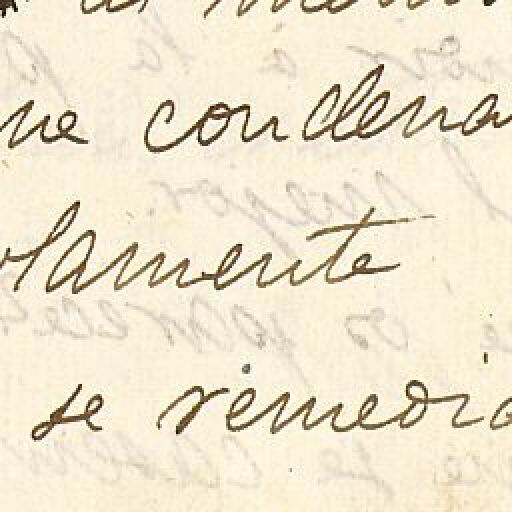 ne condena
olamente
se remedia